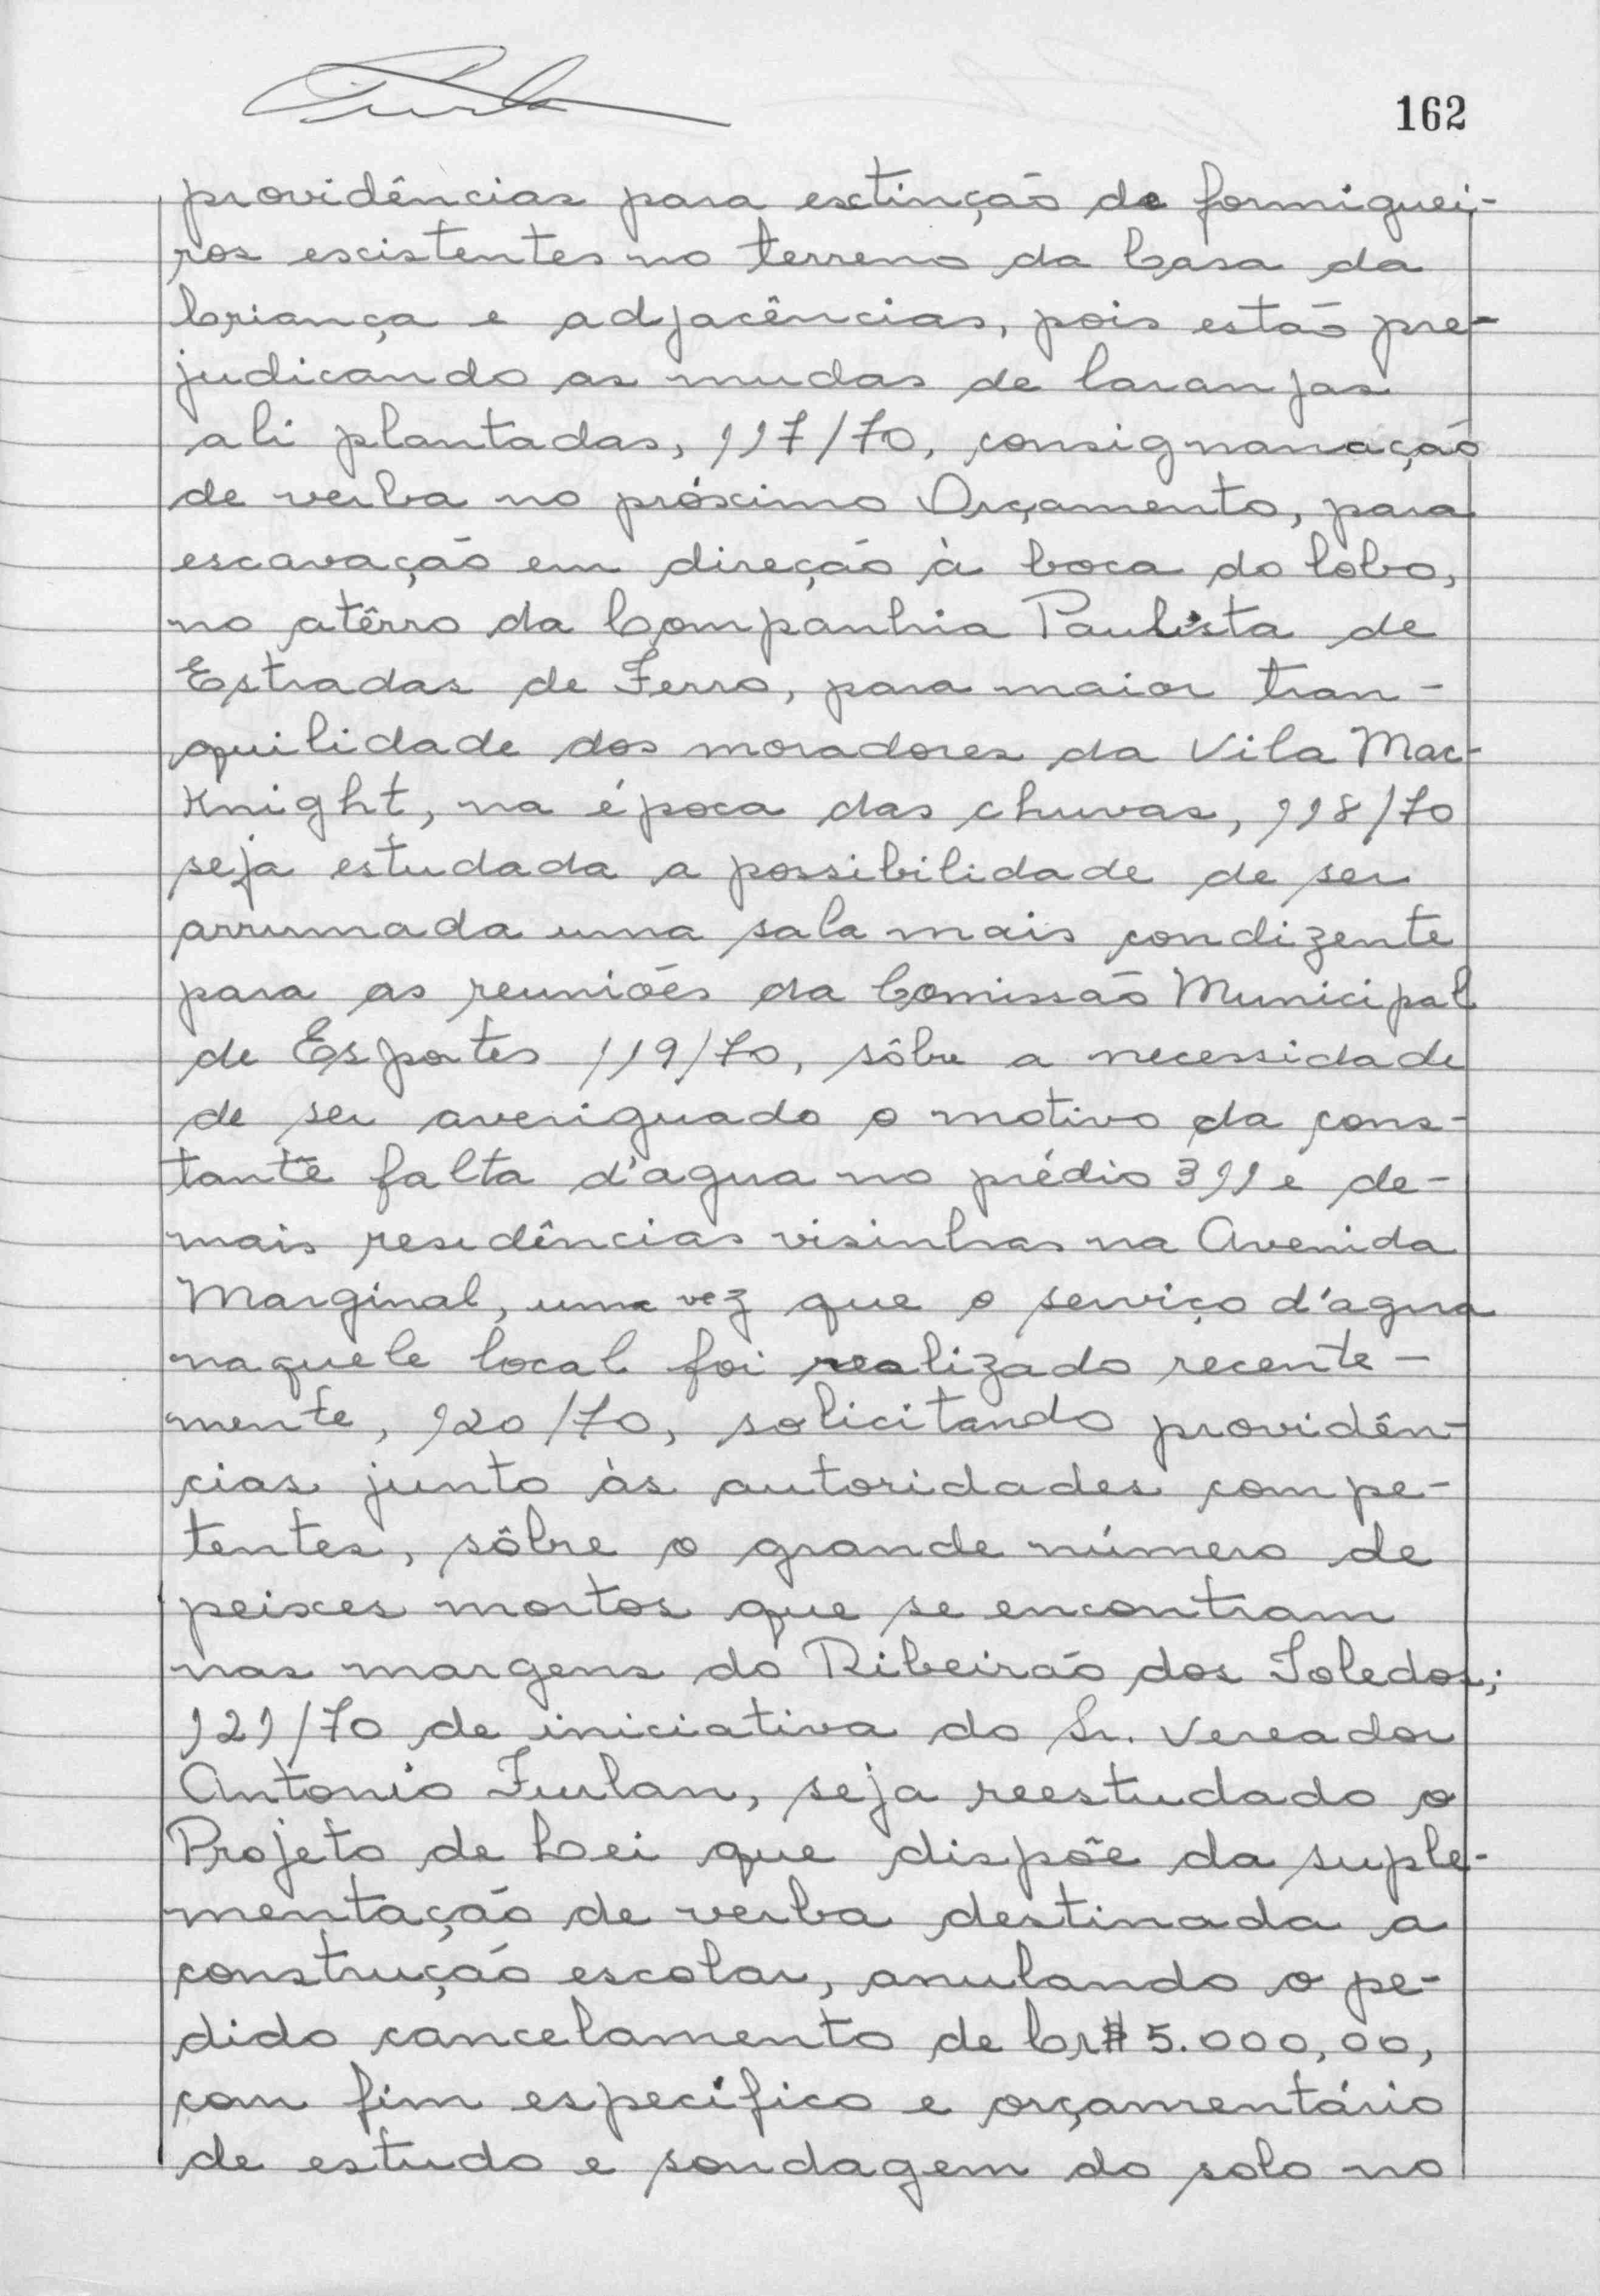 162
providências para extinção de formiguei-
ros existentes no terreno da Casa da
Criança e adjacências, pois estão pre-
judicando as mudas de laranjas
ali plantadas, 117/70, consignanação
de verba no próximo Orçamento, para
escavação em direção à boca do lobo,
no atêrro da Companhia Paulista de
Estradas de Ferro, para maior tran-
quilidade dos moradores da Vila Mac-
Knight, na época das chuvas, 118/70
seja estudada a possibilidade de ser
arrumada uma sala mais condizente
para as reuniões da Comissão Municipal
de Esportes 119/70, sôbre a necessidade
de ser averiguado o motivo da cons-
tante falta d'agua no prédio 311 e de-
mais residências visinhas na Avenida
Marginal, uma vez que o serviço d'agua
naquele local foi realizado recente-
mente, 120/70, solicitando providên-
cias junto às autoridades compe-
tentes, sôbre o grande número de
peixes mortos que se encontram
nas margens do Ribeirão dos Toledos;
121/70 de iniciativa do Sr. Vereador
Antonio Furlan, seja reestudado o
Projeto de Lei que dispõe da suple-
mentação de verba destinada a
construção escolar, anulando o pe-
dido cancelamento de Cr$ 5.000,00,
com fim especifico e orçamentário
de estudo e sondagem do solo no